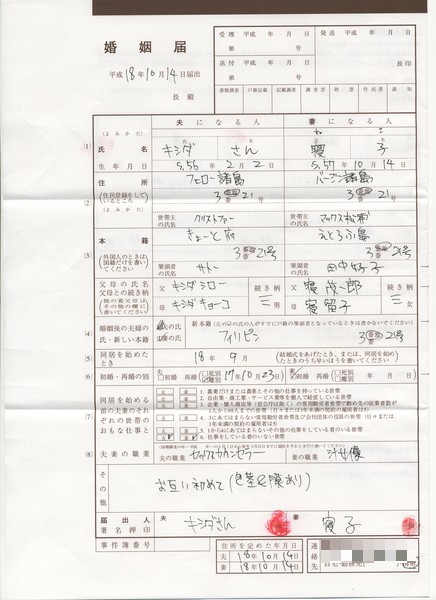 婚姻届
平成18年10月14日届出
長殿
受理 平成 年 月 日
第 号
発送 平成 年 月 日
送付 平成 年 月 日
第 号
長印
書類調査 戸籍記載 記載調査 調査票 附票 住民票 通知
夫になる人 妻になる人
(よみかた)
(1)
氏名
キシダ さん 寝 子
生年月日
S.56年2月2日 S.57年10月14日
住所
(住民登録をしているところ)
フェロー諸島 バージン諸島
3 番 21 号 3 番 21 号
(2)
(よみかた)
世帯主の氏名 クリストファー 世帯主の氏名 マックス松浦
本籍
(外国人のときは国籍だけを書いてください)
きょーと府 えとろふ島
(3)
3 番 21号 3 番 21号
筆頭者の氏名 サトー 筆頭者の氏名 田中好子
父母の氏名
父母との続き柄
(他の養父母はその他の欄に書いてください)
父 キシダ シロー 続き柄 父 続き柄
母 キシダ キョーコ 三男 母 三女
(4)
婚姻後の夫婦の氏・新しい本籍
夫の氏
妻の氏
新本籍(左の□の氏の人がすでに戸籍の筆頭者となっているときは書かないでください)
フィリピン
(5)
同居を始めたとき
18年9月
(結婚式をあげたとき、または、同居を始めたときのうち早いほうを書いてください)
(6)
初婚・再婚の別
初婚 再婚 死別 離別 17年10月23日 初婚 再婚 死別 離別 年 月 日
(7)
同居を始める前の夫妻のそれぞれの世帯のおもな仕事と
夫 妻 1. 農業だけまたは農業とその他の仕事を持っている世帯
夫 妻 2. 自由業・商工業・サービス業等を個人で経営している世帯
夫 妻 3. 企業・個人商店等(官公庁は除く)の常用勤労者世帯で勤め先の従業者数が1人から99人までの世帯(日々または1年未満の契約の雇用者は5)
夫 妻 4. 3にあてはまらない常用勤労者世帯及び会社団体の役員の世帯(日々または1年未満の契約の雇用者は5)
夫 妻 5. 1から4にあてはまらないその他の仕事をしている者のいる世帯
夫 妻 6. 仕事をしている者のいない世帯
(8)
夫妻の職業
夫の職業 セックスカウンセラー 妻の職業 汁女優
その他
お互い初めて
届出人
署名押印
夫 キシダさん 妻 寝子
事件簿番号
住所を定めた年月日
夫 18年10月14日
妻 18年10月14日
連絡先